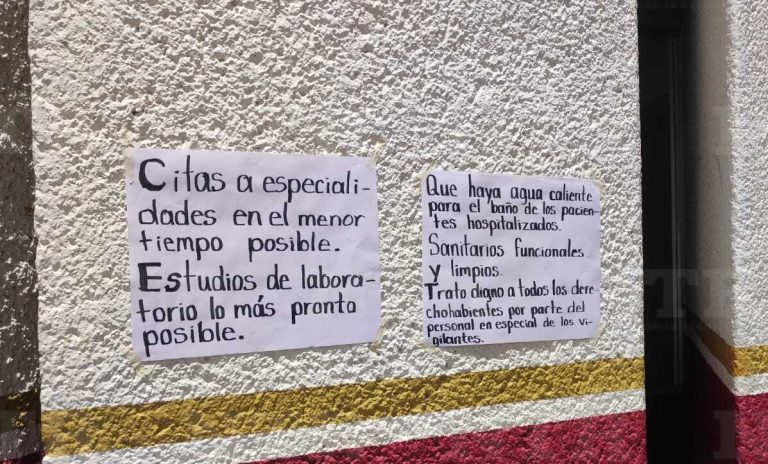 Citas a especiali-
dades en el menor
tiempo posible.
Estudios de labora-
torio lo más pronto
posible.
Que haya agua caliente
para el baño de los pacien-
tes hospitalizados.
Sanitarios funcionales
y limpios.
Trato digno a todos los dere-
chohabientes por parte del
personal en especial de los vi-
gilantes.